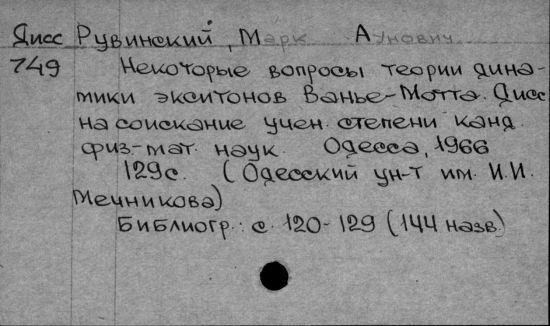 Дисс Рувинский, Марк Аунович
749 Некоторые вопросы теории дина-
мики экситонов Ванье-Мотта. Дисс
на соискание учен. степени канд.
физ-мат. наук. Одесса, 1966
129с. (Одесский ун-т им. И.И.
Мечникова)
Библиогр.: с. 120-129 (144 назв.)